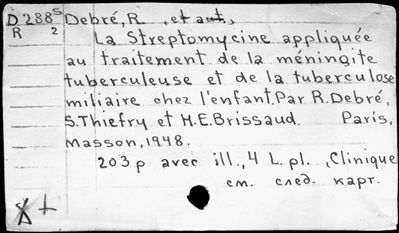 D 288⁵ Debré, R., et aut,
R 2
La Streptomycine appliquée
au traitement de la méningite
tuberculeuse et de la tuberculose
miliaire chez l'enfant. Par R. Debré,
S. Thiefry et H.E. Brissaud. Paris,
Masson, 1948.
203 p avec ill., 4 L. pl., Clinique
см. след. карт.